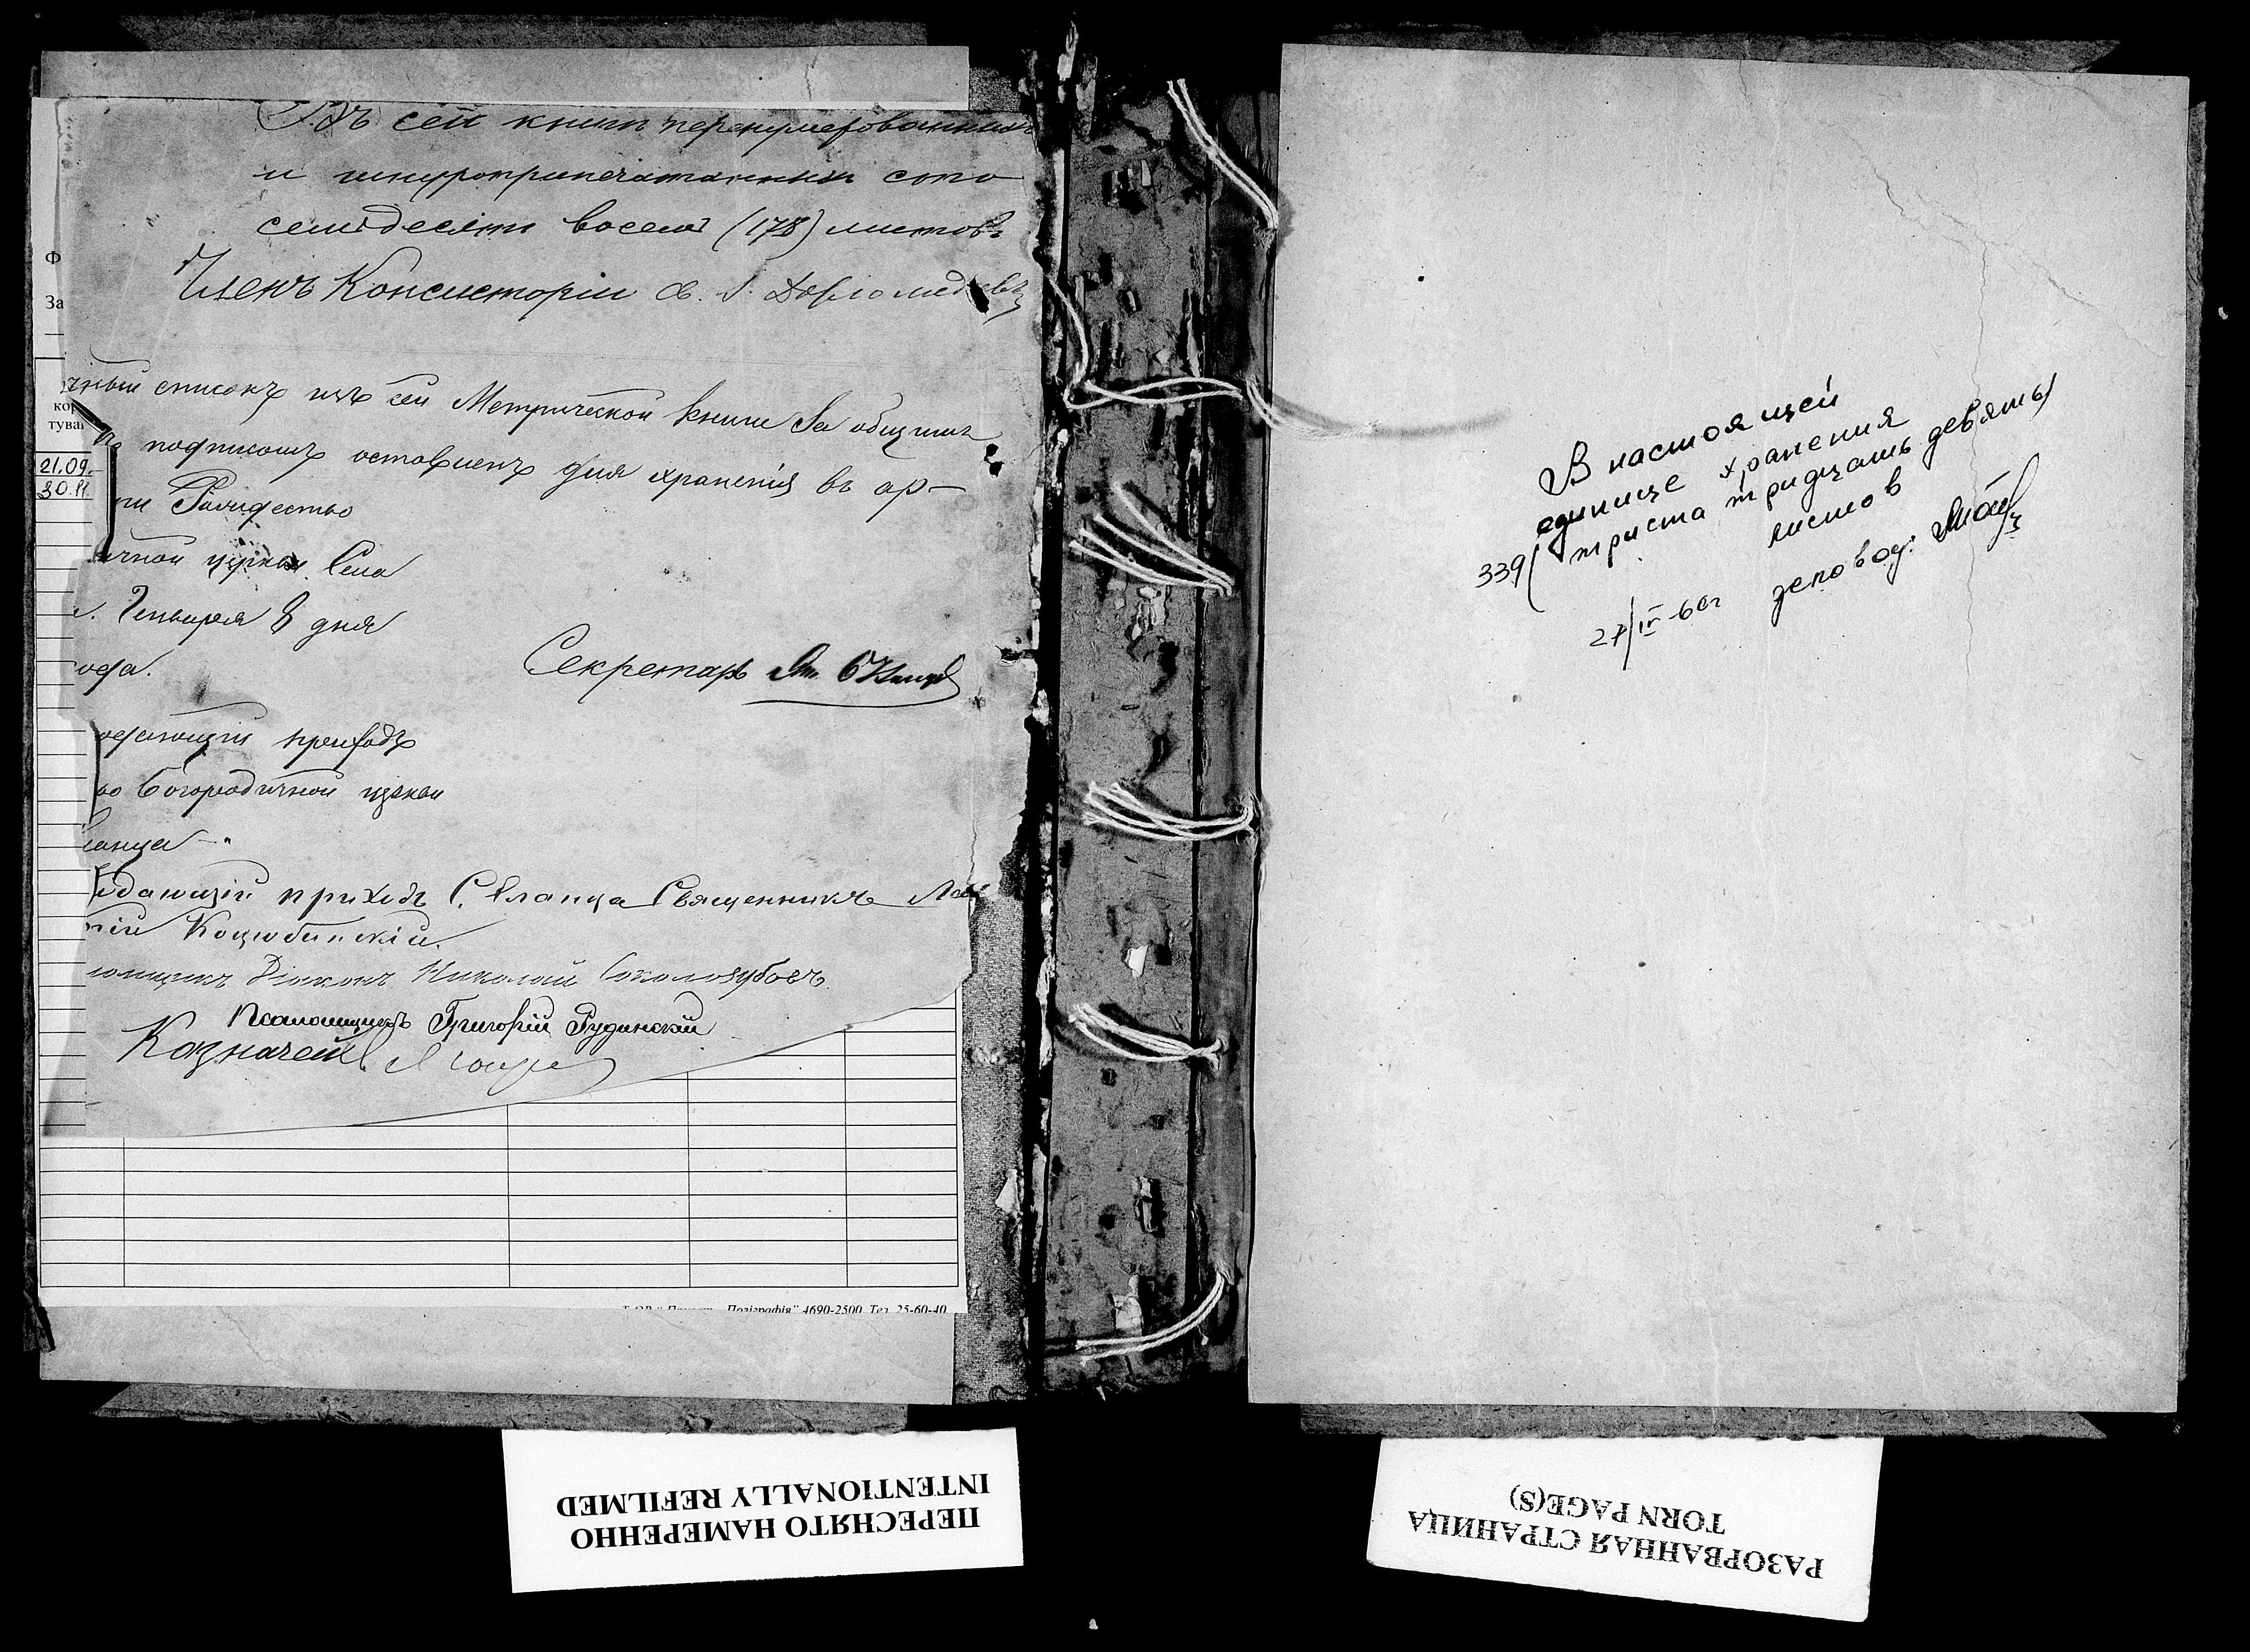 Въ сей книгѣ перенумерованныхъ
и шнуроприпечатанныхъ сто
семьдесятъ восемь (178) листовъ.
Членъ Консисторіи
чный списокъ изъ сей Метрической книги за общимъ
подписомъ оставленъ для хранения въ ар-
Рождество
ичной церкви Села
Генваря 8 дня
ода.
Секретарь
ающій приходъ
во Богородичной церкви
ланца
юдающій приходъ С. Еланца Священникъ
тій Коцюбинскій.
Діаконъ Николай Соколозубовъ.
Псаломщикъ Григорій Рудинскій
Казначей
Ф
За
кор
тува
21.09.
30.11.
Поліграфія" 4690-2500. Тел. 25-60-40
В настоящей
единице хранения
339( триста тридцать девять)
листов
27/IV-60г деловод:
ПЕРЕСНЯТО НАМЕРЕННО
INTENTIONALLY REFILMED
РАЗОРВАННАЯ СТРАНИЦА
TORN PAGE(S)